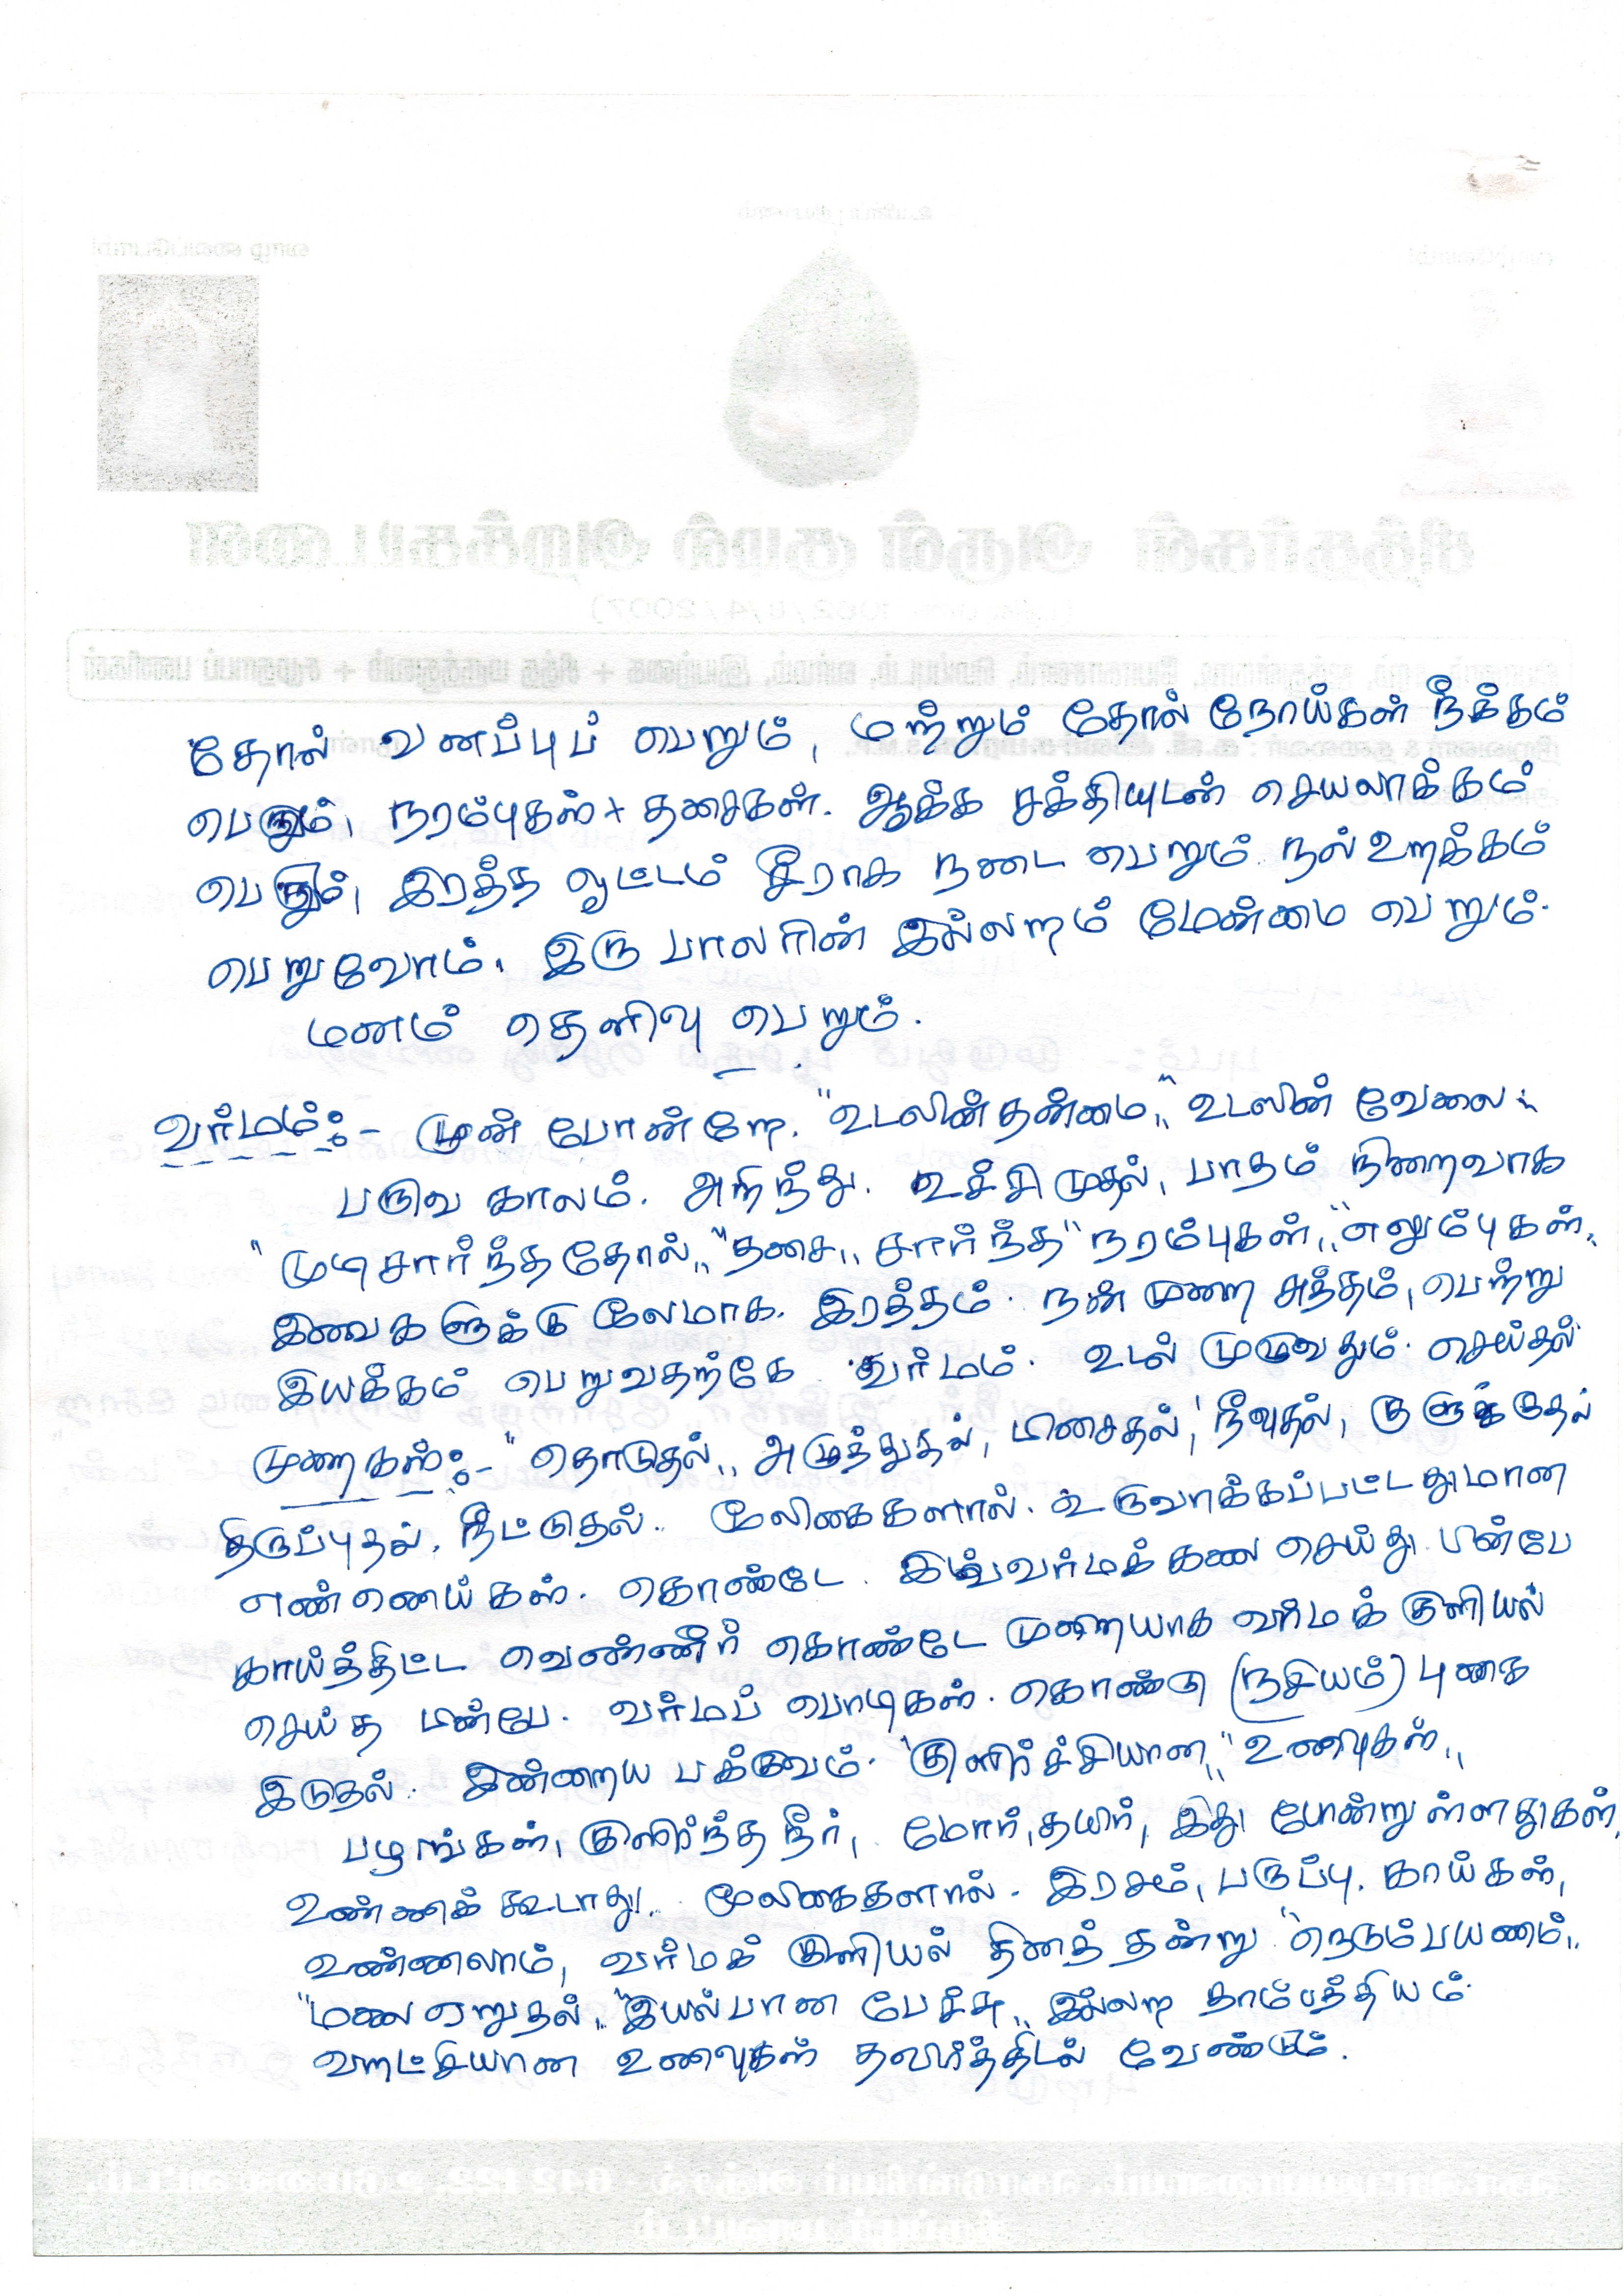 தோல் வனப்புப் பெறும், மற்றும் தோல் நோய்கள் நீக்கம்
பெறும், நரம்புகள் + தசைகள். ஆக்க சக்தியுடன் செயலாக்கம்
பெறும், இரத்த ஓட்டம் சீராக நடை பெறும். நல் உறக்கம்
பெறுவோம். இரு பாலரின் இல்லறம் மேன்மை பெறும்.
மனம் தெளிவு பெறும்.
வர்மம்:- முன் போன்றே. "உடலின் தன்மை," "உடலின் வேலை
பருவ காலம். அறிந்து. உச்சி முதல், பாதம் நிறைவாக
"முடி சார்ந்த தோல்," "தசை,, சார்ந்த" நரம்புகள்," "எலும்புகள்,
இவைகளுக்கு மேலமாக. இரத்தம். நன் முறை சுத்தம், பெற்று
இயக்கம் பெறுவதற்கே வர்மம். உடல் முழுவதும். செய்தல்
முறைகள்:- "தொடுதல்,, அழுத்துதல், பிசைதல், நீவுதல், குளுக்குதல்
திருப்புதல், நீட்டுதல். மேலிகைகளால். உருவாக்கப்பட்டதுமான
எண்ணெய்கள். கொண்டே. இவ்வர்மக்கலை செய்து பின்பே
காய்த்திட்ட வெண்ணீர் கொண்டே முறையாக வர்மக் குளியல்
செய்த பின்பே. வர்மப் பொடிகள். கொண்டு (நசியம்) புகை
இடுதல். இன்றைய பக்குவம். "குளிர்ச்சியான," "உணவுகள்,,
பழங்கள், குளிர்ந்த நீர், மோர், தயிர், இது போன்றுள்ளதுகள்,
உண்ணக் கூடாது!. மூலிகைகளால். இரசம், பருப்பு. காய்கள்,
உண்ணலாம், வர்மக் குளியல் தினத் தன்று "நெடும்பயணம்,,
"மலை ஏறுதல்," "இயல்பான பேச்சு,, இல்லற தாம்பத்தியம்
வறட்சியான உணவுகள் தவிர்த்திடல் வேண்டும்.